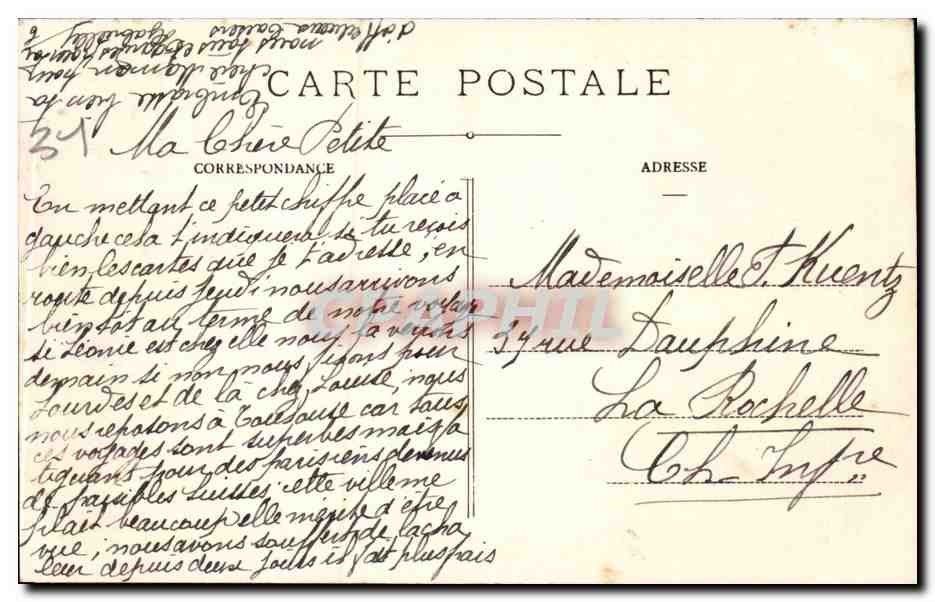 CARTE POSTALE
31
Ma Chère Petite
CORRESPONDANCE
En mettant ce petit chiffre placé a
gauche cela t'indiquera si tu reçois
bien les cartes que je t'adresse, en
route depuis jeudi nous arrivons
bientôt au terme de notre voyage
si Léonie est chez elle nous la verrons
demain si non nous filons pour
Lourdes et de là chez Louise, nous
nous reposons à Toulouse car tous
ces voyages sont superbes mais fa
tiguant pour des parisiens devenus
de paisibles suisses, cette ville me
plait beaucoup elle mérite d'être
vue, nous avons souffert de la cha
leur depuis deux jours il fait plus frais
Embrasse bien ta
chère Maman pour
nous tous et gardes pour toi
d'affectueux baisers
Gabrielle
ADRESSE
Mademoiselle F. Kuentz
37 rue Dauphine
La Rochelle
Ch Infre
CPAPHIL